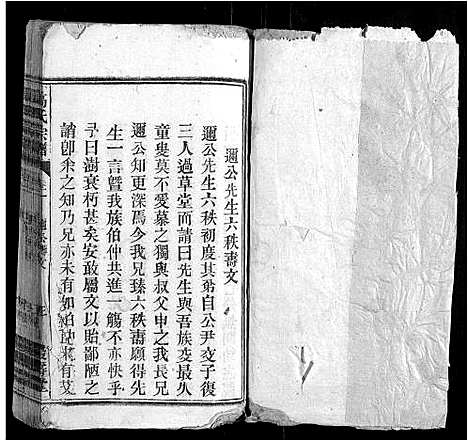 邇公先生六秩壽文
邇公先生六秩初度其弟自公尹文子復
三人過草堂而請曰先生與吾族交最久
童叟莫不愛慕之獨與叔父申之我長兄
邇公知更深焉今我兄臻六秩壽願得先
生一言暨我族伯仲共進一觴不亦快乎
予曰澍衰朽甚矣安敢屬文以貽鄙陋之
誚卽余之知乃兄亦未有如怕
氏宗譜